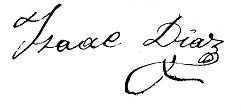 Isaac Diaz